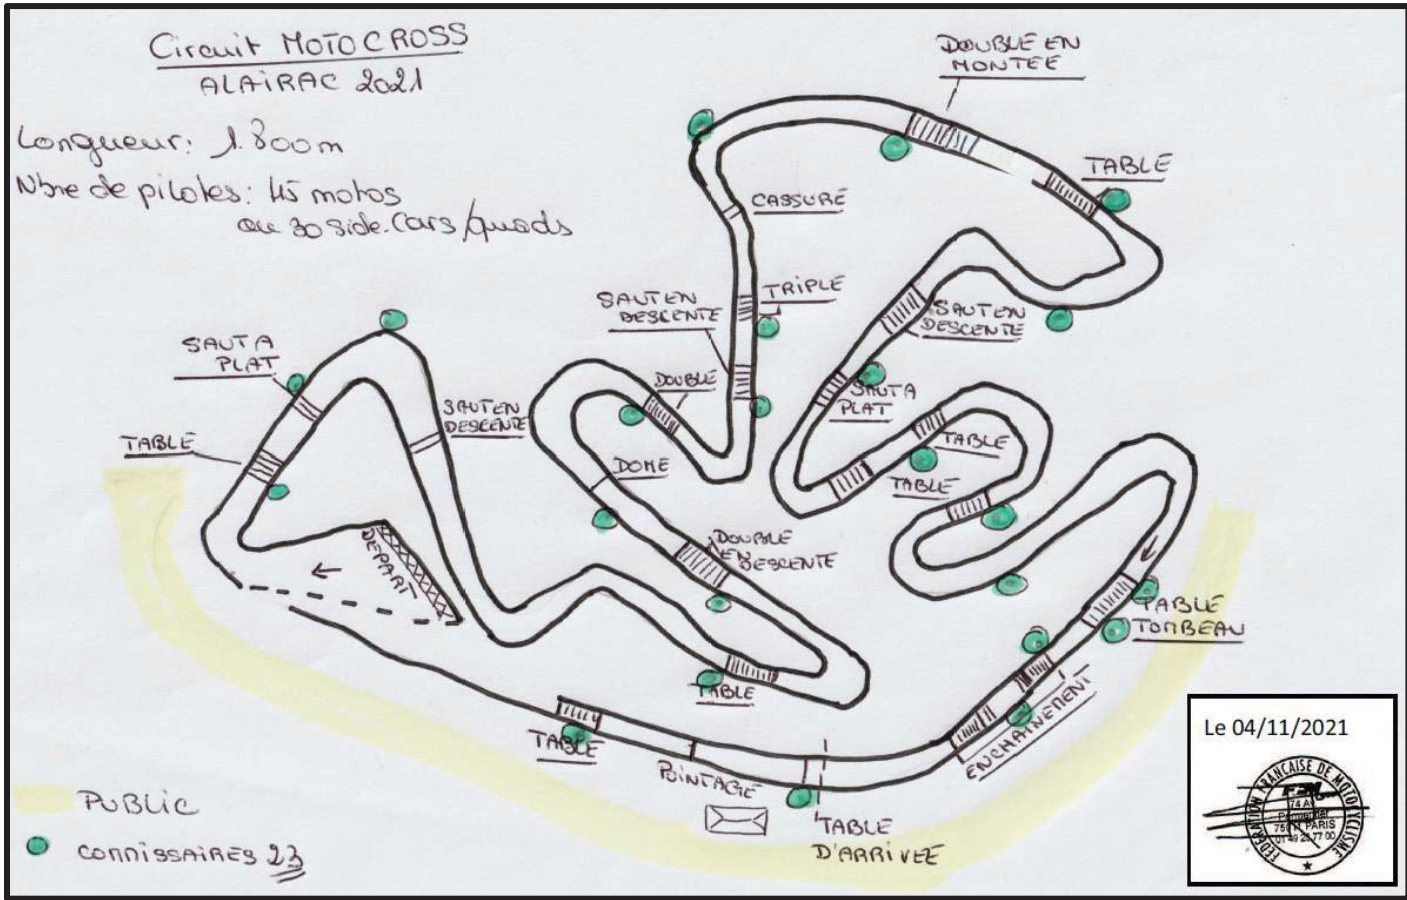 Circuit MOTOCROSS
ALAIRAC 2021
Longueur: 1.800m
Nbre de pilotes: 45 motos
ou 30 side.cars/quads
DOUBLE EN
MONTEE
TABLE
CASSURE
TRIPLE
SAUT EN
DESCENTE
SAUT EN
DESCENTE
SAUT A
PLAT
DOUBLE
SAUT A
PLAT
SAUT EN
DESCENTE
TABLE
TABLE
TABLE
DOME
DOUBLE
EN
DESCENTE
DEPART
TABLE
TOMBEAU
TABLE
ENCHAINEMENT
TABLE
POINTAGE
TABLE
D'ARRIVEE
PUBLIC
COMMISSAIRES 23
Le 04/11/2021
FEDERATION FRANCAISE DE MOTOCYCLISME
FFM
74 Av
PARIS
01 49 23 77 00